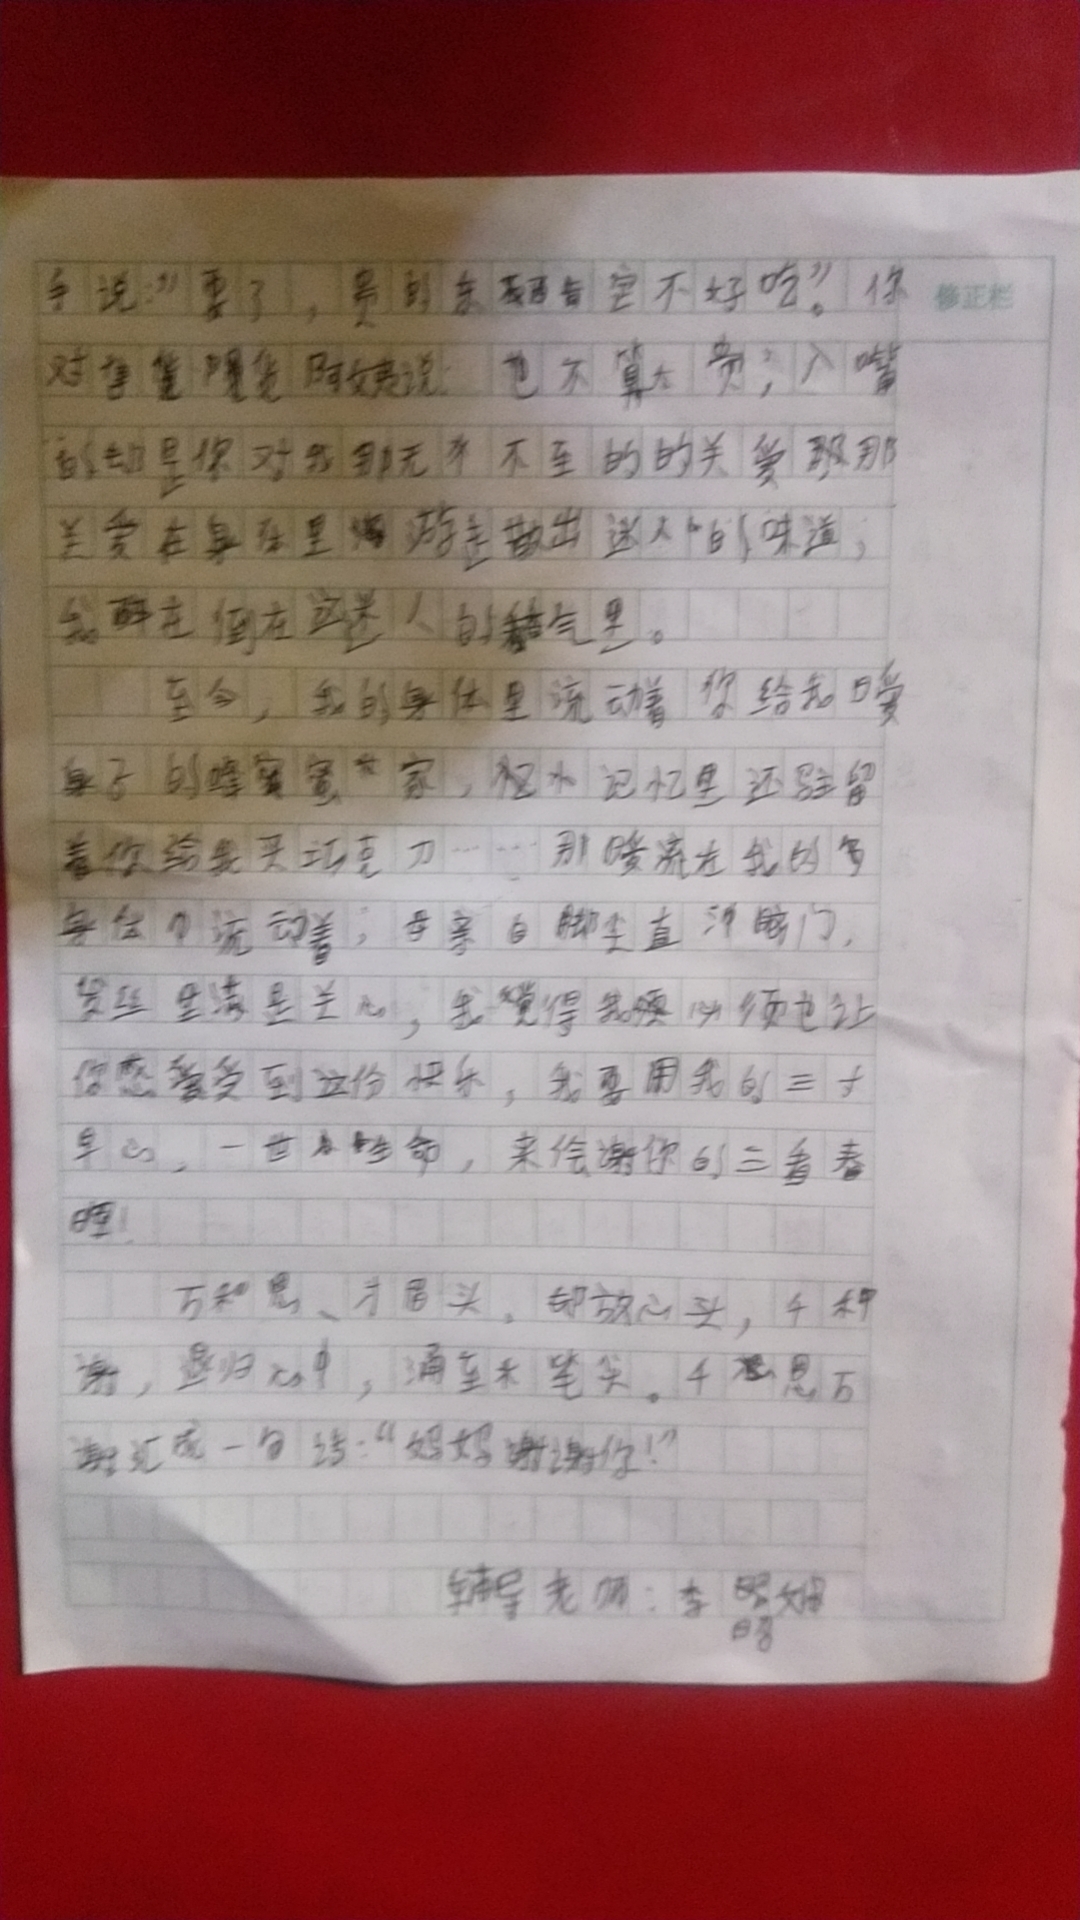 手说:"要了,贵的东西肯定不好吃"。你
修正栏
对售货阿姨说:也不算太贵;入嘴
的却是你对我那无不至的的关爱那
关爱在身体里游走散出迷人的味道;
我醉在倒在这迷人的气里。
至今,我的身体里流动着你给我暖
身子的蜂蜜,记忆里还驻留
着你给我买巧克力……那暖流在我的
身体中流动着;母亲自脚尖直冲脑门,
里满是关心,我觉得我必须也让
你感受到这份快乐,我要用我的三寸
草心,一世生命,来绘谢你的三春
晖!
万种恩、方眉头,却放心头,千种
谢,归心中,涌至笔尖。千恩万
谢汇成一句话:"妈妈谢谢你!"
辅导老师:李